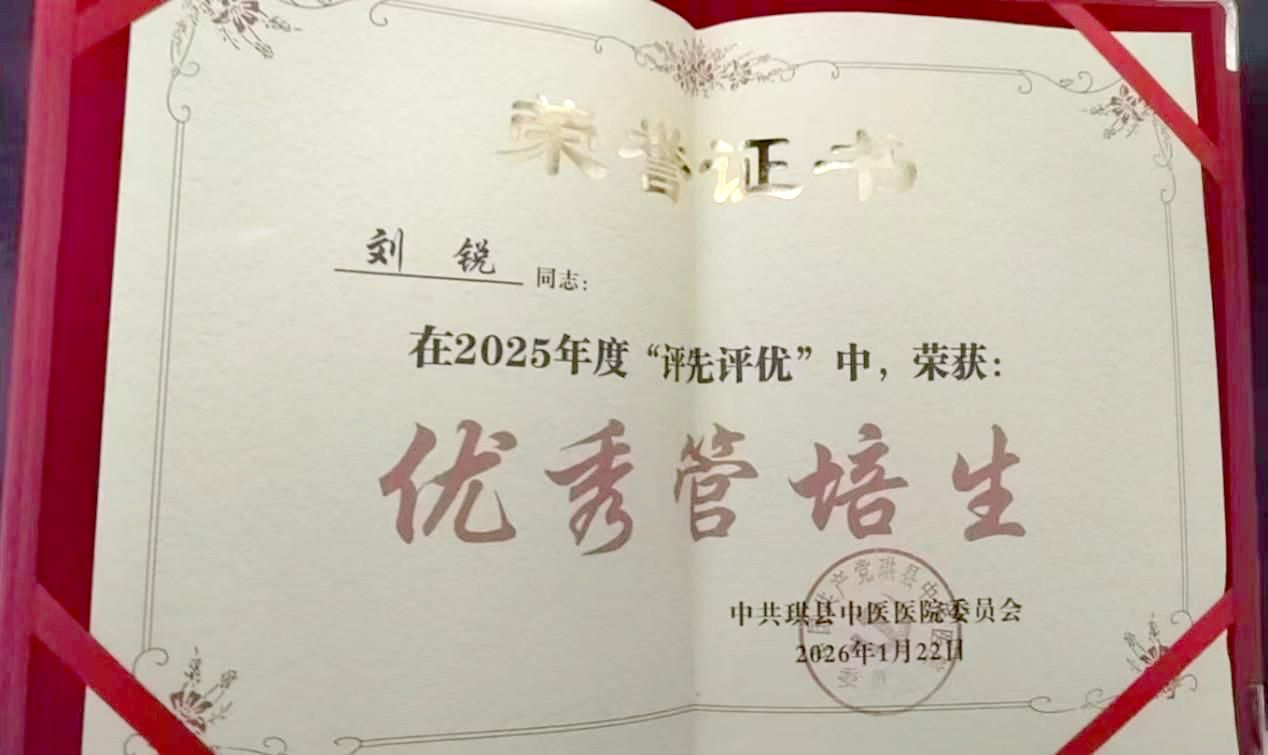 荣誉证书
刘 锐 同志：
在2025年度“评先评优”中，荣获：
优秀管培生
中共珙县中医医院委员会
2026年1月22日